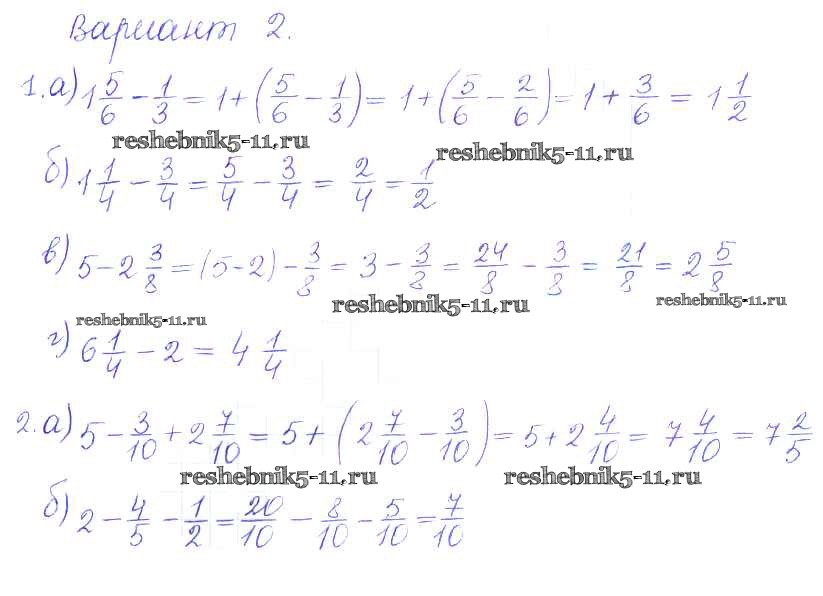 Вариант 2.
1. а) 1 5/6 − 1/3 = 1 + (5/6 − 1/3) = 1 + (5/6 − 2/6) = 1 + 3/6 = 1 1/2
reshebnik5-11.ru reshebnik5-11.ru
б) 1 1/4 − 3/4 = 5/4 − 3/4 = 2/4 = 1/2
в) 5 − 2 3/8 = (5 − 2) − 3/8 = 3 − 3/8 = 24/8 − 3/8 = 21/8 = 2 5/8
reshebnik5-11.ru reshebnik5-11.ru reshebnik5-11.ru
г) 6 1/4 − 2 = 4 1/4
2. а) 5 − 3/10 + 2 7/10 = 5 + (2 7/10 − 3/10) = 5 + 2 4/10 = 7 4/10 = 7 2/5
reshebnik5-11.ru reshebnik5-11.ru
б) 2 − 4/5 − 1/2 = 20/10 − 8/10 − 5/10 = 7/10